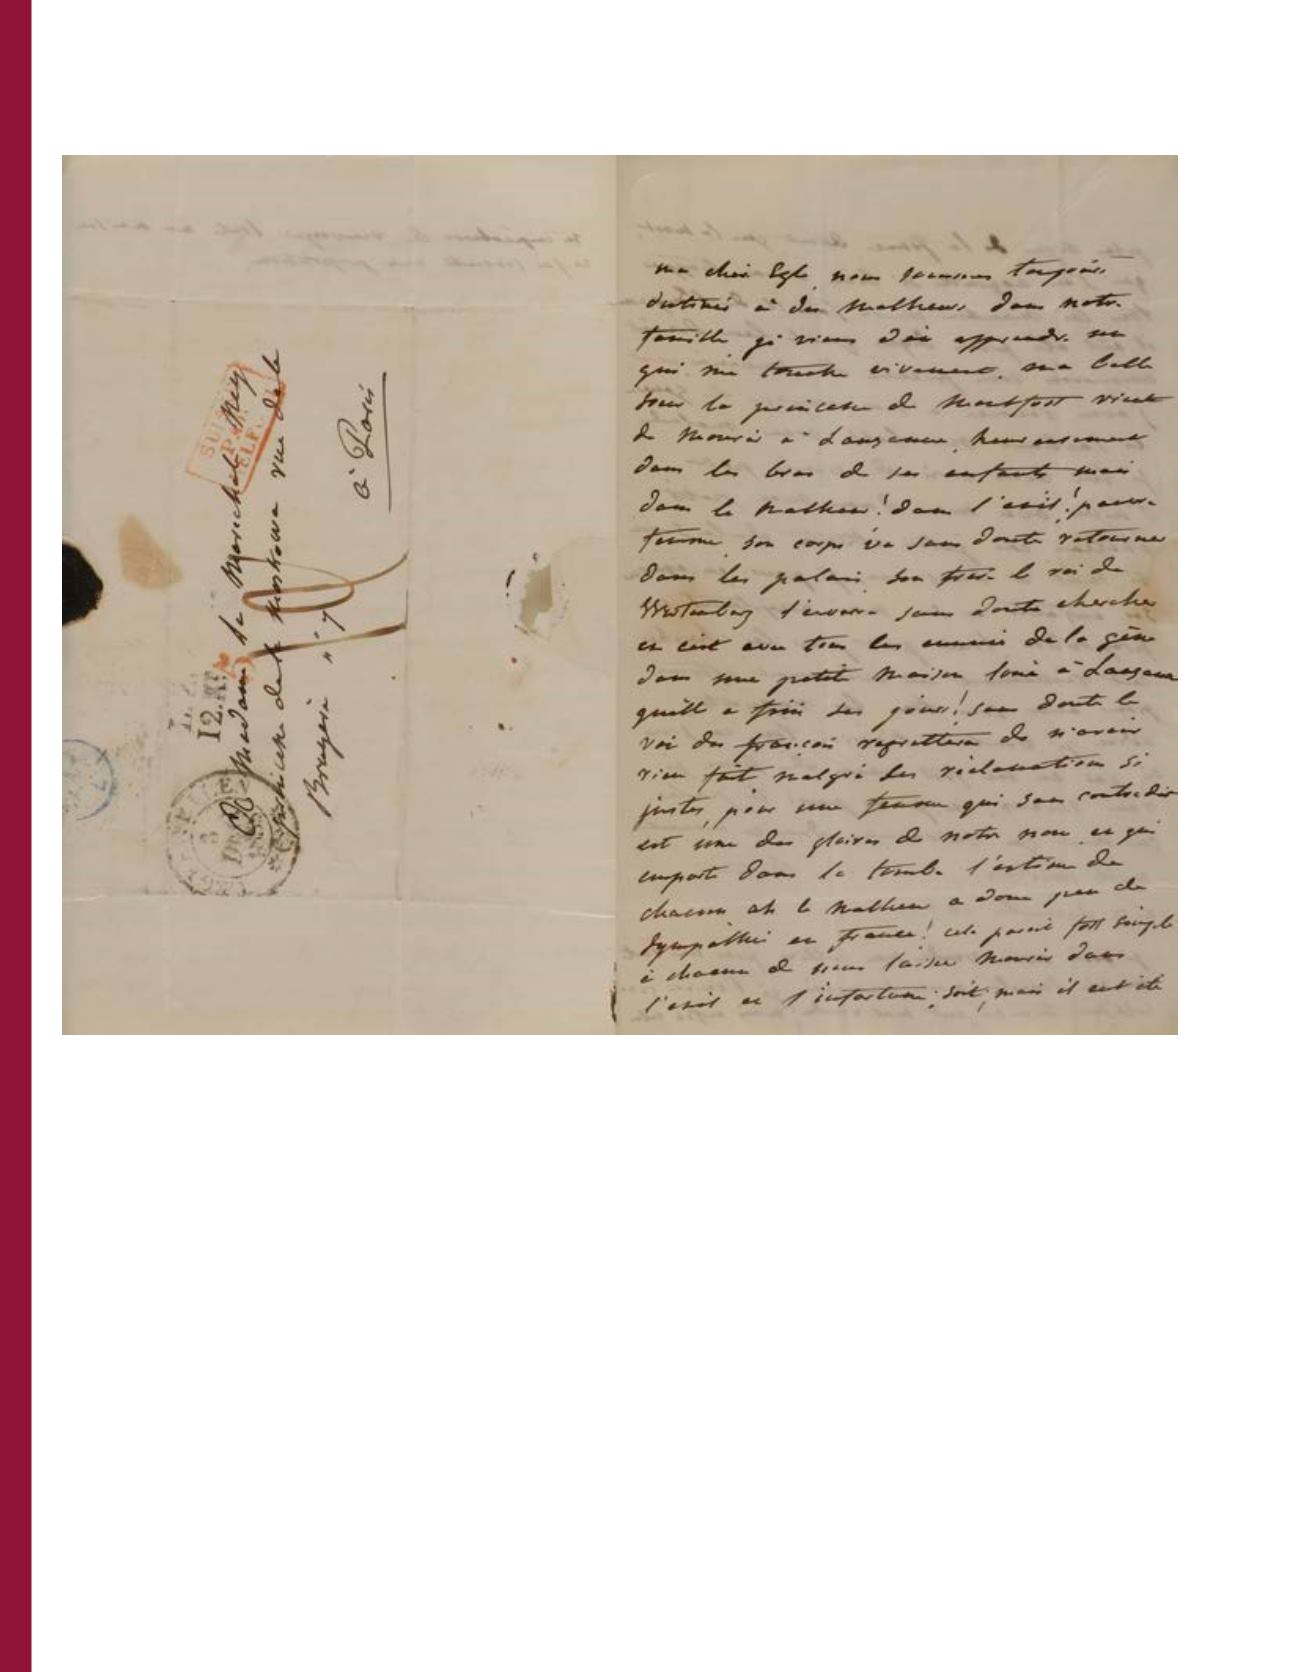 Madame la Marechale Ney
princesse de la Moskowa rue de la
à Paris
SUISSE
ma cher Egle, nous sommes toujours
destinés à des malheurs dans notre
famille j'en viens d'en apprendre un
qui me touche vivement, ma belle
sœur la princesse de Montfort vient
de mourir à Lausanne, heureusement
dans les bras de ses enfants mais
dans le malheur! dans l'exil! pauvre
femme, son corps va sans doute retourner
dans les palais son frere le roi de
l'enverra sans doute chercher
et c'est avec tous les ennuis de la gêne
dans une petite maison loué à Lausanne
quelle a fini ses jours! sans doute le
roi des français regrettera de n'avoir
rien fait malgré des réclamations si
justes, pour une femme qui sans contredit
est une des gloires de notre nom et qui
emporte dans la tombe l'estime de
chacun ah le malheur a donc peu de
sympathie en france! cela parait fort simple
à chacun de nous laisser mourir dans
l'exil et l'infortune; soit; mais il eut été